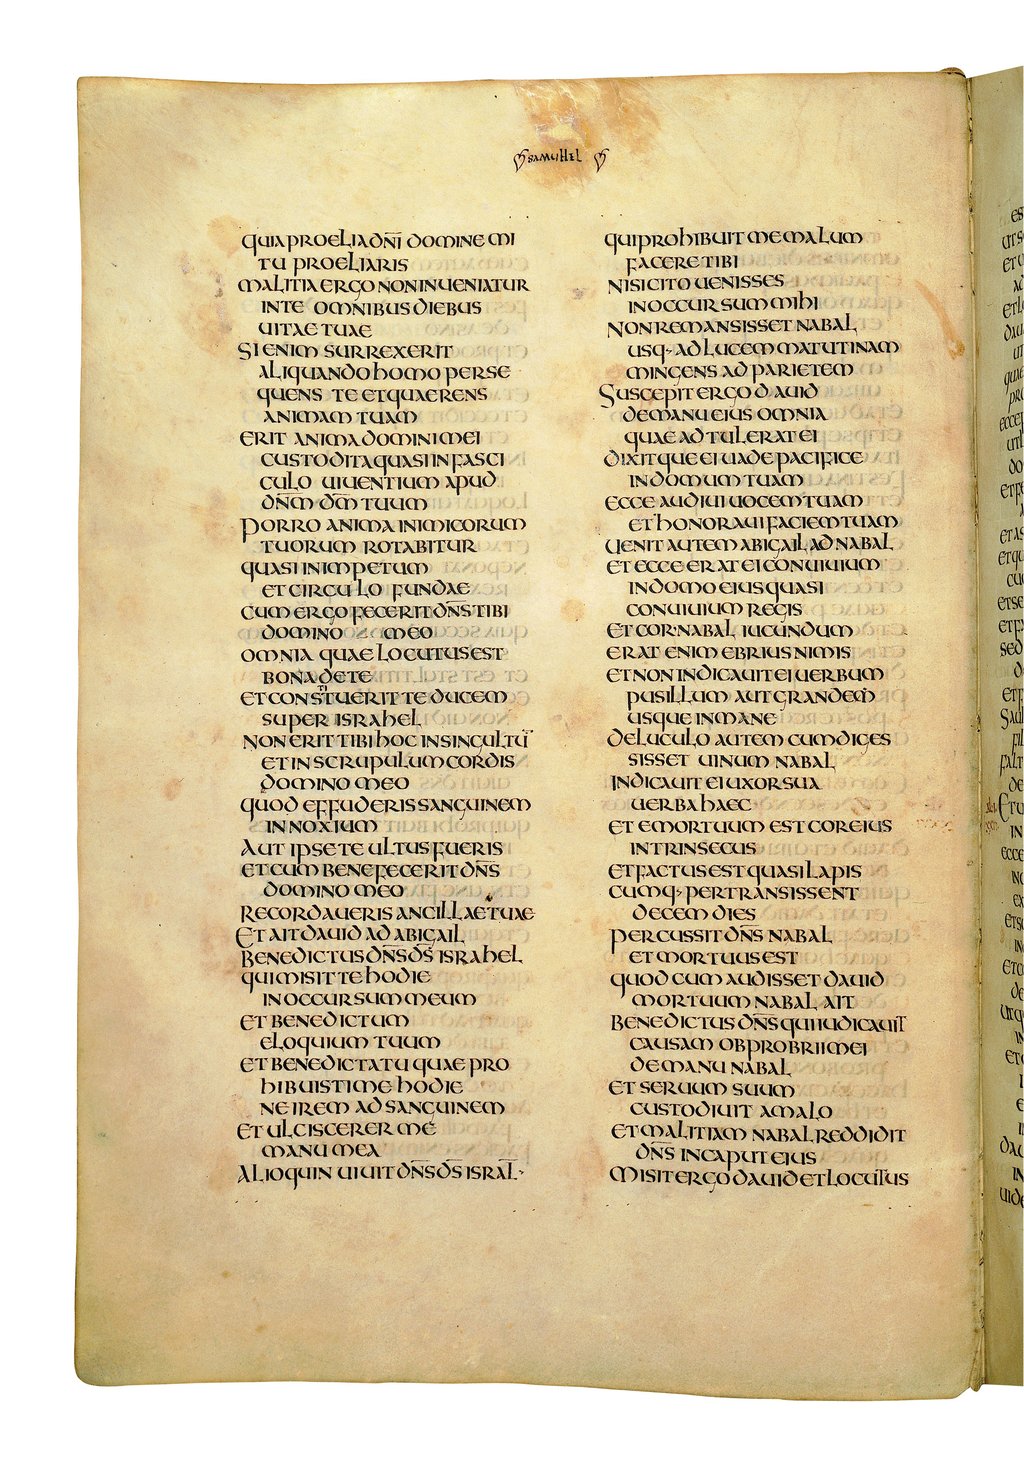 SAMUHEL
QUIA PROELIA DN̅I DOMINE MI
TU PROELIARIS
MALITIA ERGO NON INVENIATUR
INTE OMNIBUS DIEBUS
UITAE TUAE
SI ENIM SURREXERIT
ALIQUANDO HOMO PERSE
QUENS TE ET QUAERENS
ANIMAM TUAM
ERIT ANIMA DOMINI MEI
CUSTODITA QUASI IN FASCI
CULO UIUENTIUM APUD
DN̅M DM̅ TUUM
PORRO ANIMA INIMICORUM
TUORUM ROTABITUR
QUASI IN IMPETUM
ET CIRCULO FUNDAE
CUM ERGO FECERIT DN̅S TIBI
DOMINO MEO
OMNIA QUAE LOCUTUS EST
BONA DE TE
ET CONSTUERIT TE DUCEM
SUPER ISRAHEL
NON ERIT TIBI HOC IN SINGULTU̅
ET IN SCRUPULUM CORDIS
DOMINO MEO
QUOD EFFUDERIS SANGUINEM
INNOXIUM
AUT IPSE TE ULTUS FUERIS
ET CUM BENEFECERIT DN̅S
DOMINO MEO
RECORDAUERIS ANCILLAE TUAE
ET AIT DAUID AD ABIGAIL
BENEDICTUS DN̅S DS̅ ISRAHEL
QUI MISIT TE HODIE
IN OCCURSUM MEUM
ET BENEDICTUM
ELOQUIUM TUUM
ET BENEDICTA TU QUAE PRO
HIBUISTI ME HODIE
NE IREM AD SANGUINEM
ET ULCISCERER ME
MANU MEA
ALIOQUIN UIUIT DN̅S DS̅ ISRAL̅·
QUI PROHIBUIT ME MALUM
FACERE TIBI
NISI CITO UENISSES
IN OCCURSUM MIHI
NON REMANSISSET NABAL
USQ· AD LUCEM MATUTINAM
MINGENS AD PARIETEM
SUSCEPIT ERGO DAUID
DE MANU EIUS OMNIA
QUAE ADTULERAT EI
DIXITQUE EI UADE PACIFICE
IN DOMUM TUAM
ECCE AUDIUI UOCEM TUAM
ET HONORAUI FACIEM TUAM
UENIT AUTEM ABIGAIL AD NABAL
ET ECCE ERAT EI CONUIUIUM
IN DOMO EIUS QUASI
CONUIUIUM REGIS
ET COR·NABAL IUCUNDUM
ERAT ENIM EBRIUS NIMIS
ET NON INDICAUIT EI UERBUM
PUSILLUM AUT GRANDEM
USQUE IN MANE
DELUCULO AUTEM CUM DIGES
SISSET UINUM NABAL
INDICAUIT EI UXOR SUA
UERBA HAEC
ET EMORTUUM EST COR EIUS
INTRINSECUS
ET FACTUS EST QUASI LAPIS
CUMQ· PERTRANSISSENT
DECEM DIES
PERCUSSIT DN̅S NABAL
ET MORTUUS EST
QUOD CUM AUDISSET DAUID
MORTUUM NABAL AIT
BENEDICTUS DN̅S QUI IUDICAUIT
CAUSAM OBPROBRII MEI
DE MANU NABAL
ET SERUUM SUUM
CUSTODIUIT A MALO
ET MALITIAM NABAL REDDIDIT
DN̅S IN CAPUT EIUS
MISIT ERGO DAUID ET LOCUTUS